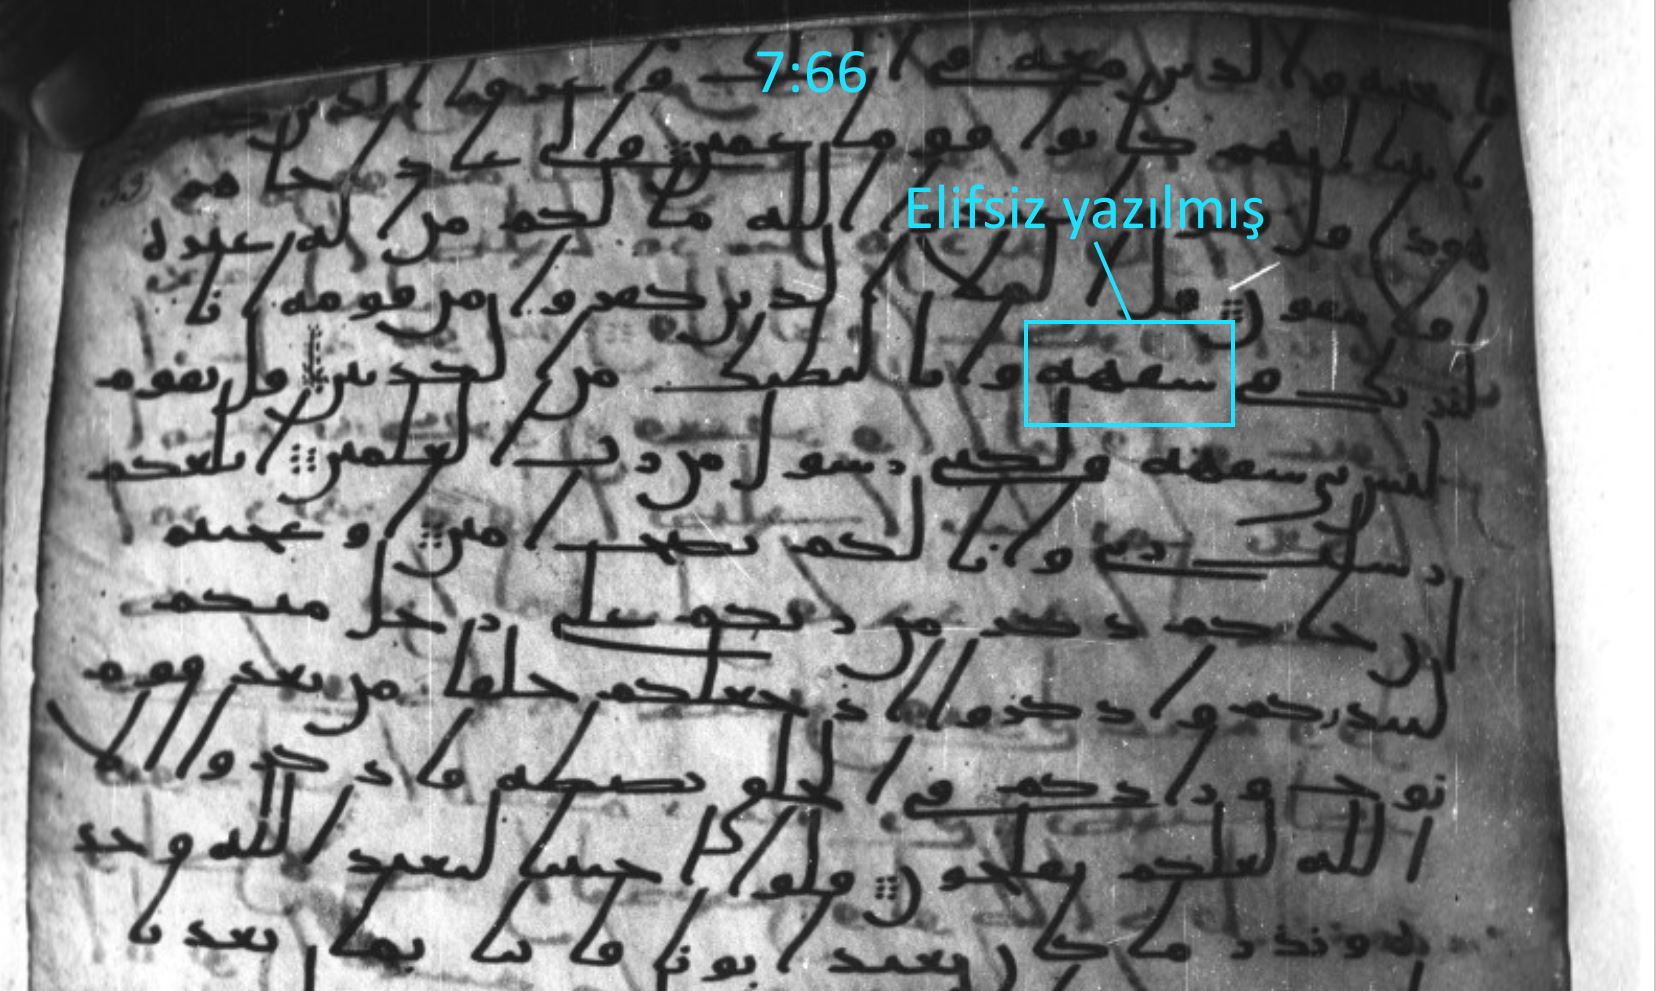 7:66
Elifsiz yazılmış
فانجينه والذين معه في الفلك واغرقنا الذين
بايتنا انهم كانوا قوما عمين والى عاد اخاهم
هودا قال يقوم اعبدوا الله ما لكم من اله غيره
افلا تتقون قال الملا الذين كفروا من قومه انا
لنريك في سفهه وانا لنظنك من الكذبين قال يقوم
ليس بي سفهه ولكني رسول من رب العلمين ابلغكم
رسلت ربي وانا لكم نصح امين او عجبتم
ان جاكم ذكر من ربكم على رجل منكم
لينذركم واذكروا اذ جعلكم خلفا من بعد قوم
نوح وزادكم في الخلق بصطه فاذكروا الا
الله لعلكم تفلحون قالوا اجيتنا لنعبد الله وحد
ه ونذر ما كان يعبد اباونا فاتنا بما تعدنا